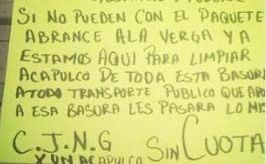 SI NO PUEDEN CON EL PAQUETE
ABRANCE A LA VERGA Y A
ESTAMOS AQUI PARA LIMPIAR
ACAPULCO DE TODA ESTA BASURA
A TODO TRANSPORTE PUBLICO QUE
A ESA BASURA LES PASARA LO
C.J.N.G SIN CUOTA
X UN ACAPULCO